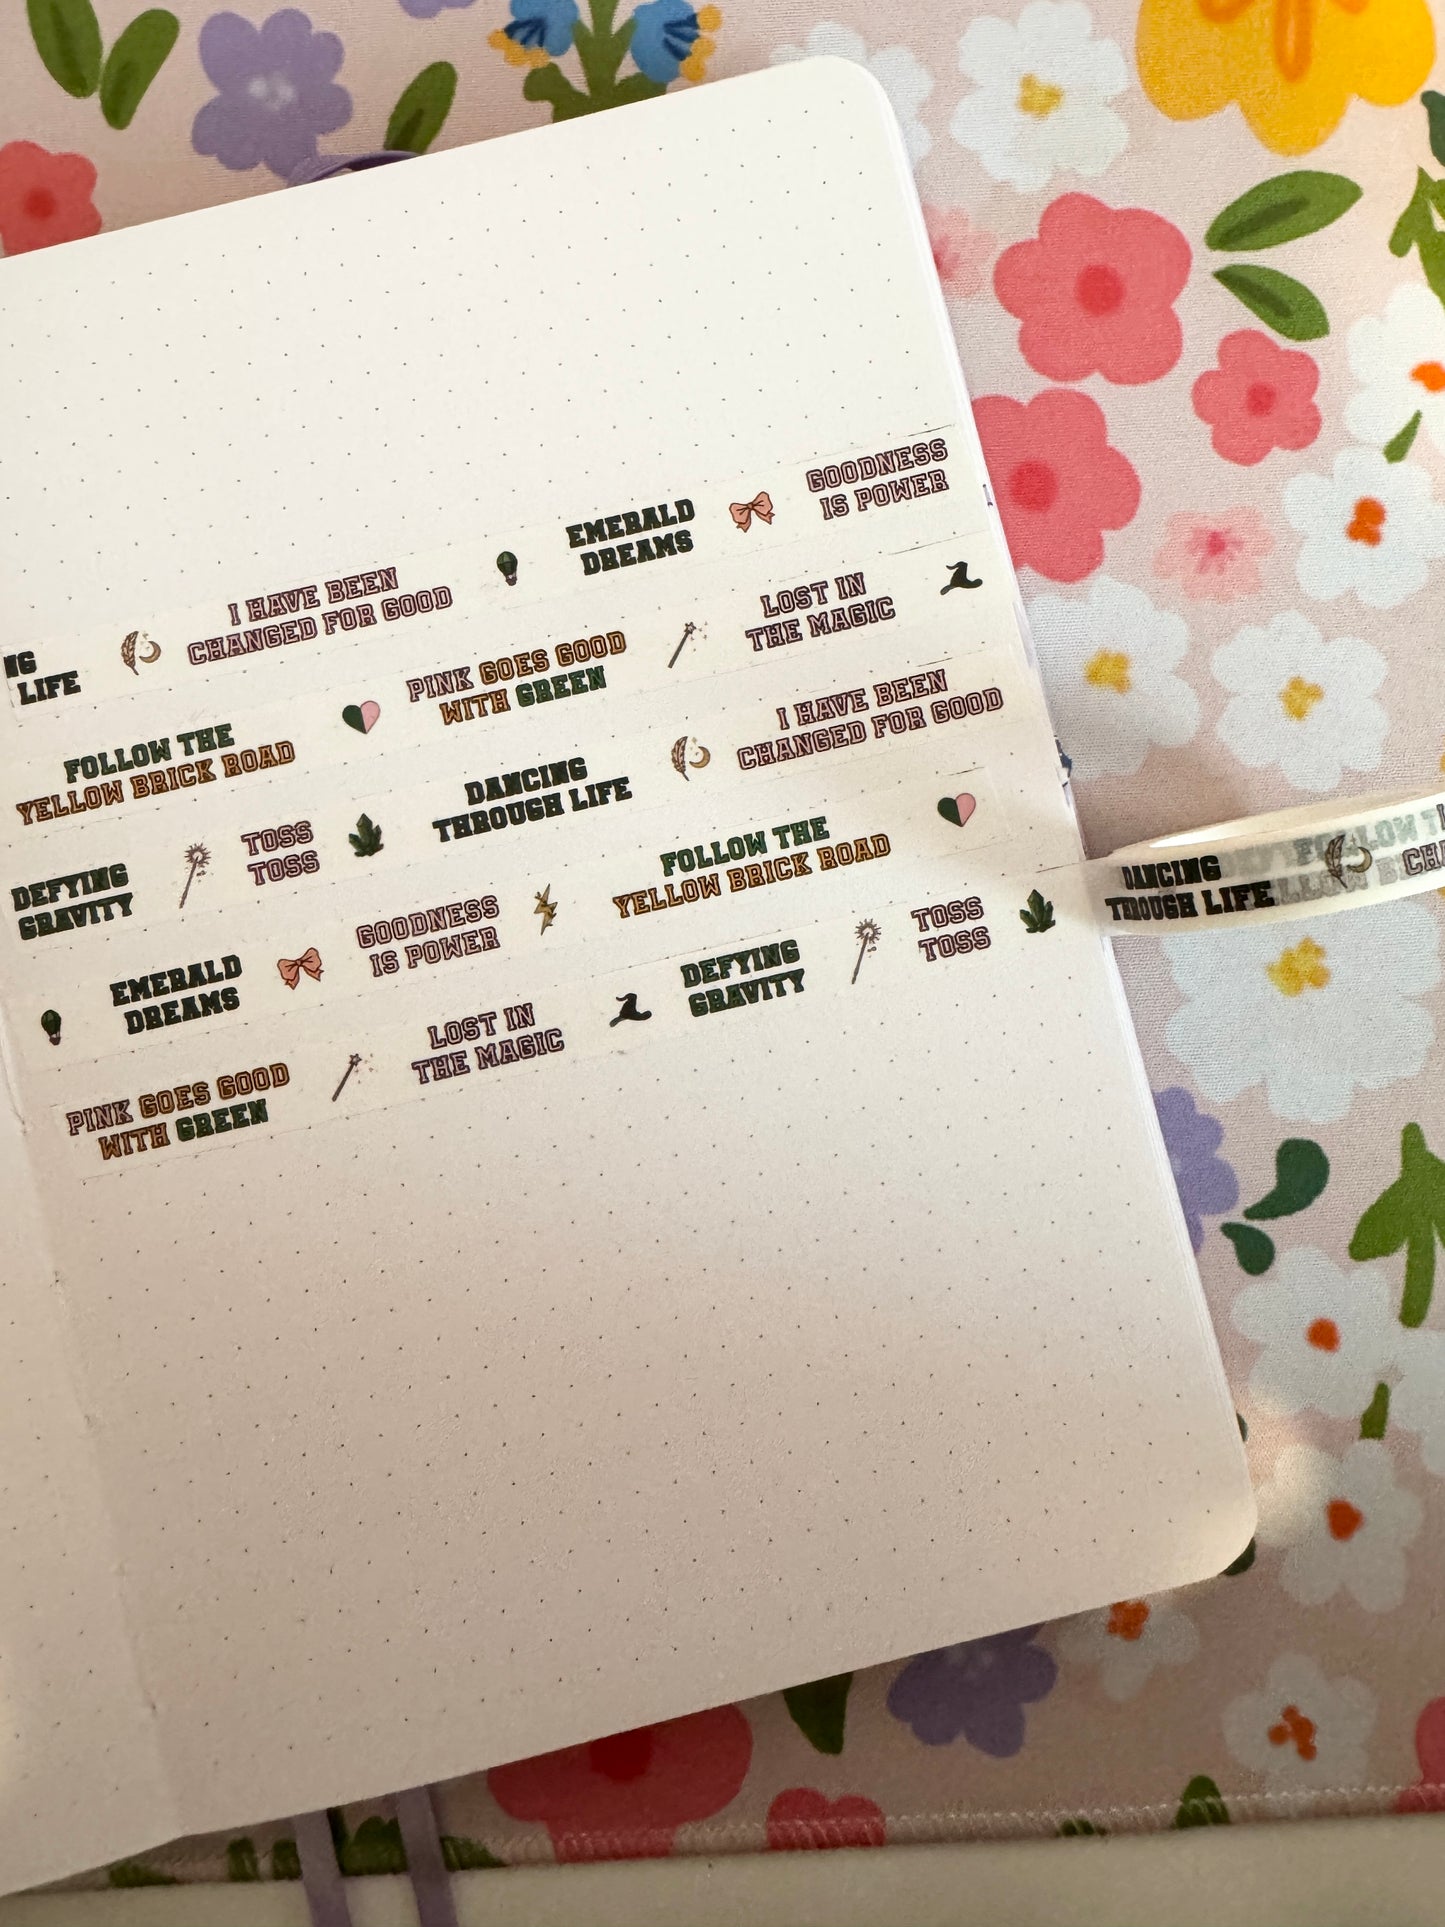 NG
LIFE
I HAVE BEEN
CHANGED FOR GOOD
EMERALD
DREAMS
GOODNESS
IS POWER
FOLLOW THE
YELLOW BRICK ROAD
PINK GOES GOOD
WITH GREEN
LOST IN
THE MAGIC
DEFYING
GRAVITY
TOSS
TOSS
DANCING
THROUGH LIFE
I HAVE BEEN
CHANGED FOR GOOD
EMERALD
DREAMS
GOODNESS
IS POWER
FOLLOW THE
YELLOW BRICK ROAD
PINK GOES GOOD
WITH GREEN
LOST IN
THE MAGIC
DEFYING
GRAVITY
TOSS
TOSS
DANCING
THROUGH LIFE
CHA